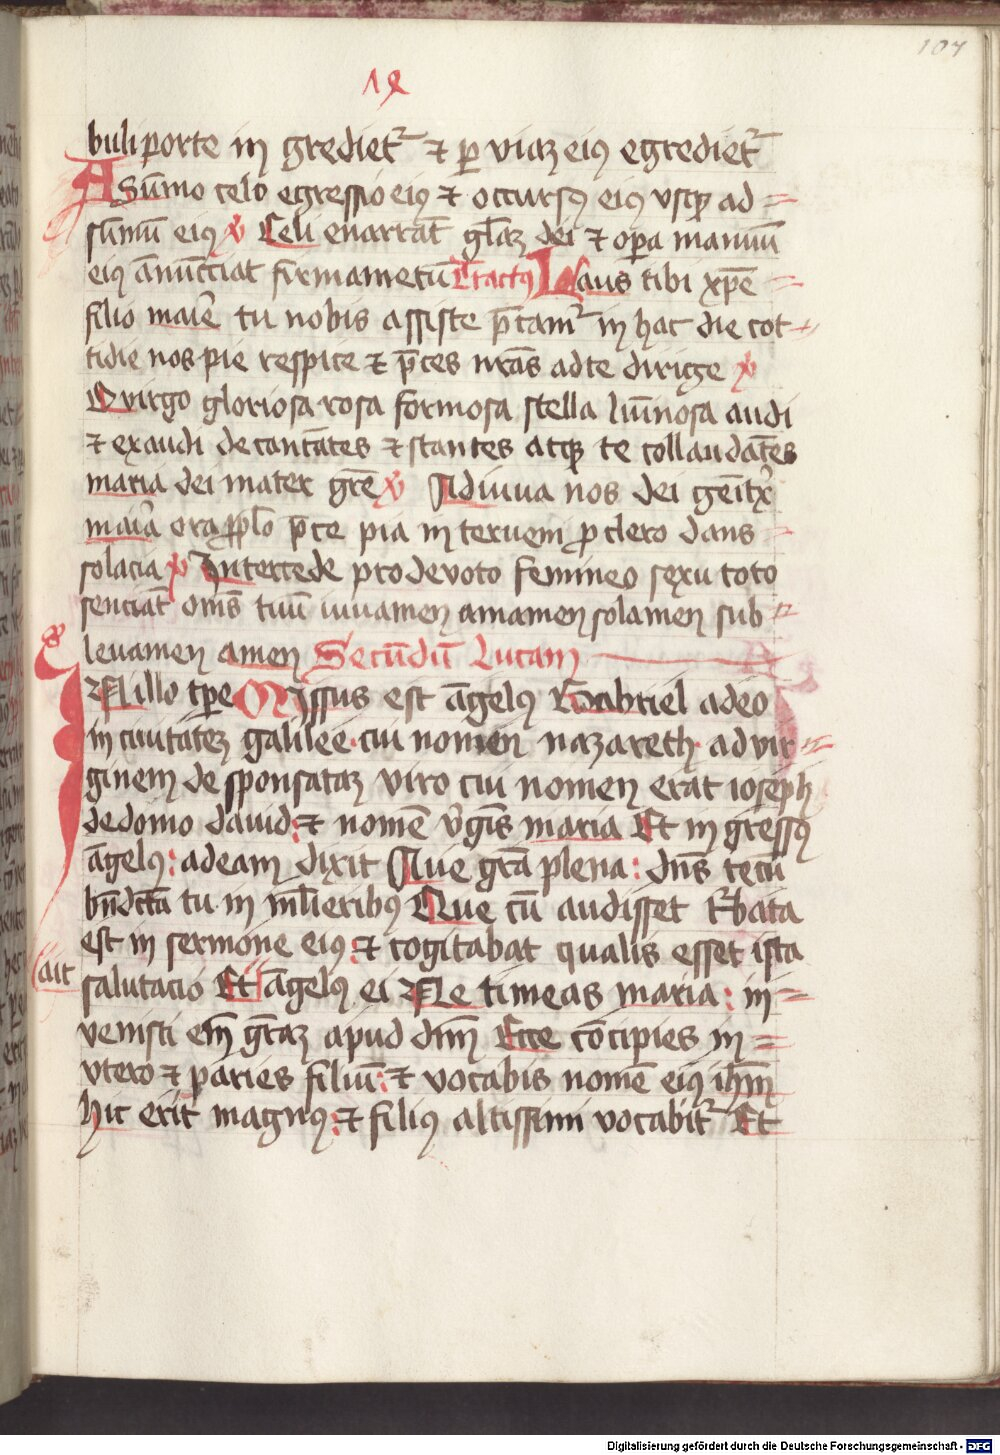 107
18
buli porte in gredietr ⁊ ꝑ viaꝫ eiꝰ egredietr
A Su̅mo celo egressio eiꝰ ⁊ occursꝰ eiꝰ vsqꝫ ad
su̅mu̅ eiꝰ ℣ Celi enarra̅t gl̅aꝫ dei ⁊ oꝑa manuu̅
eiꝰ a̅nu̅cciat firmame̅tu̅ Tractꝰ Laus tibi xp̅e
filio marie̅ tu nobis assiste p̅camr in hac die cot
tidie nos pie respice ⁊ p̅ces nr̅as ad te dirige ℣
O virgo gloriosa rosa formosa stella lu̅i̅nosa audi
⁊ exaudi decanta̅tes ⁊ stantes atqꝫ te collauda̅tes
maria dei mater gr̅e ℣ Adiuua nos dei ge̅itx̅
mai̅a ora ꝓ pl̅o p̅ce pia interuem ꝓ clero dans
solacia ℣ Intercede pro deuoto femineo sexu toto
sencia̅t om̅s tuu̅ iuuamen amamen solamen sub
leuamen amen Secu̅du̅ Lucam
IN illo tꝑe Missus est a̅gelꝰ Gabriel a deo
in ciuitateꝫ galilee cui nomen nazareth ad vir
ginem desponsataꝫ viro cui nomen erat ioseph
de domo dauid ⁊ nome̅ v̅gi̅s maria Et in gressꝰ
a̅gelꝰ ad eam dixit Aue gr̅a plena dn̅s tecu̅
bn̅dc̅ta tu in ml̅ieribꝰ Que cu̅ audisset tr̅bata
est in sermone eiꝰ ⁊ cogitabat qualis esset ista
ait
salutacio Et a̅gelꝰ ei Ne timeas maria in
venisti em̅ gr̅aꝫ apud dn̅m Ecce co̅cipies in
vtero ⁊ paries filiu̅ ⁊ vocabis nome̅ eiꝰ ihm̅
hic erit magnꝰ ⁊ filiꝰ altissimi vocabitr Et
Digitalisierung gefördert durch die Deutsche Forschungsgemeinschaft - DFG